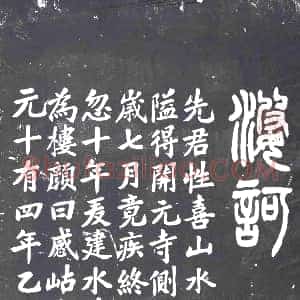 訶
先君性喜山水
隘得開元寺側
歲七月竟疾終
忽十年爰建水
為樓頭曰感岵
元十有四年乙